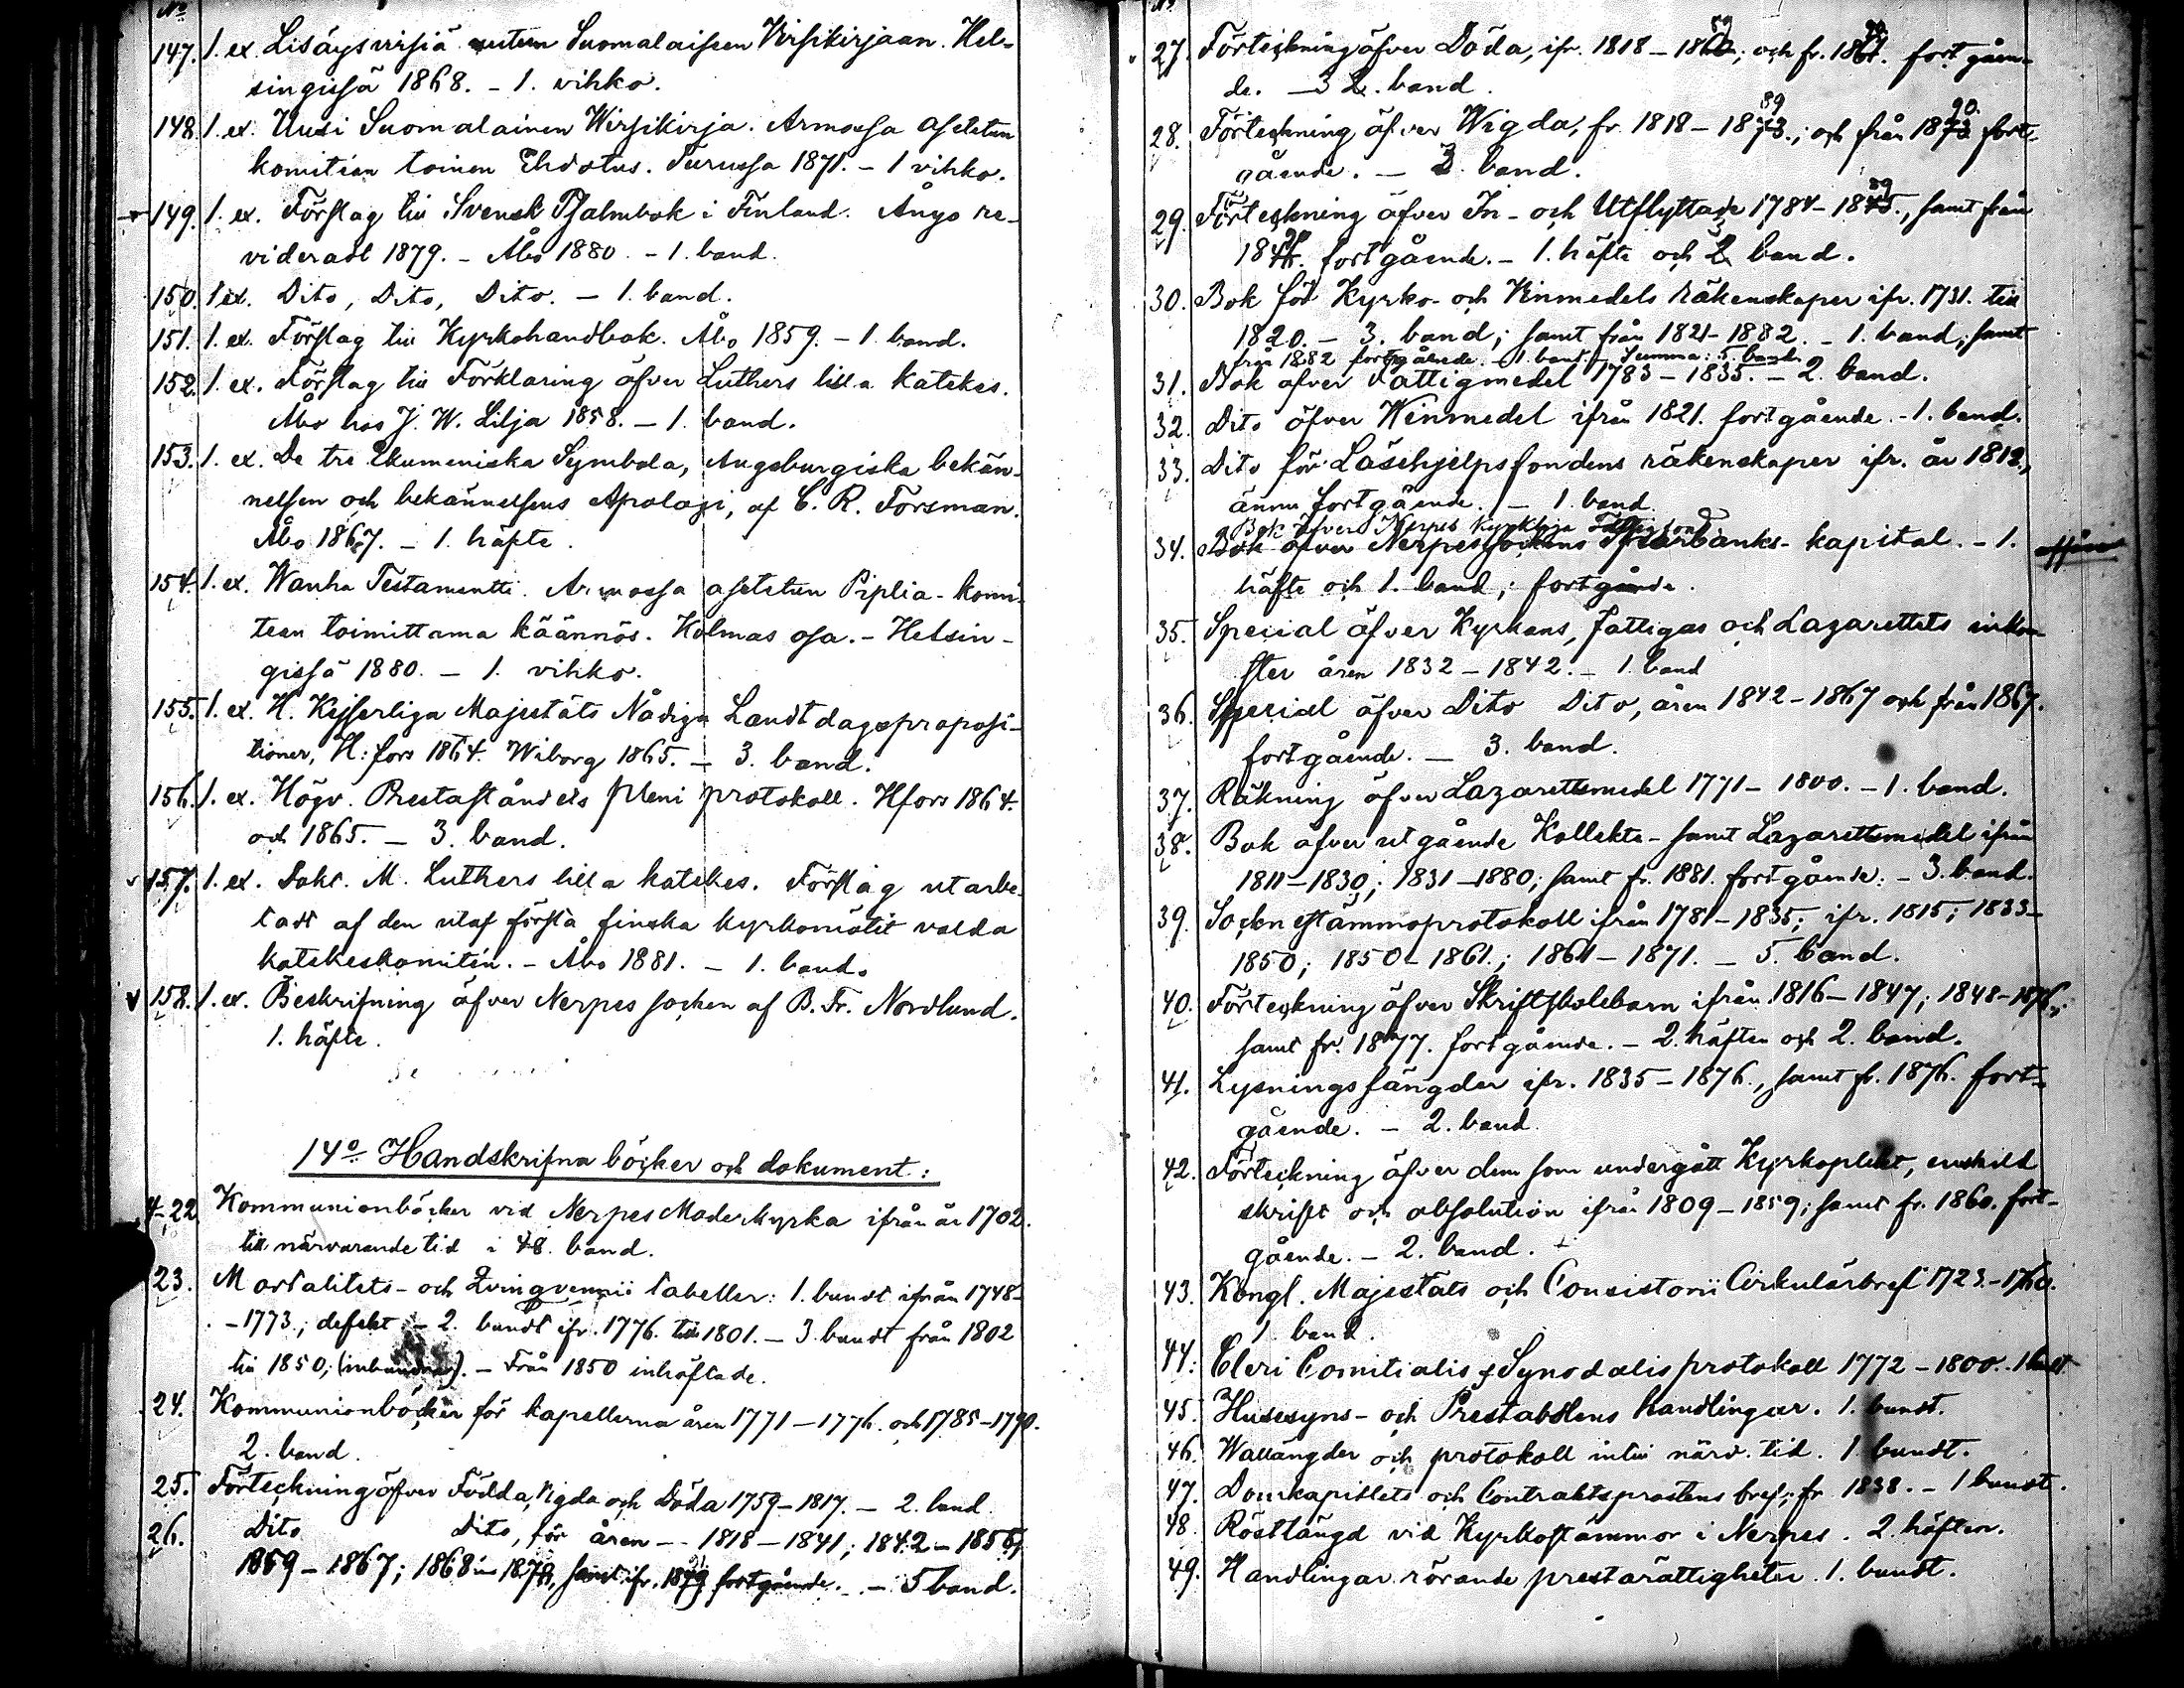 No
147. 1. ex. Lisäys virsiä uuteen Suomalaiseen Virsikirjaan. Hel-
singissä 1868. - 1. vihko.
148. 1. ex. Uusi Suomalainen Wirsikirja. Armossa asetetun
komitéan toinen Ehdotus. Turussa 1871. - 1 vihko.
149. 1. ex. Förslag till Svensk Psalmbok i Finland. Ånyo re-
videradt 1879. - Åbo 1880. - 1. band.
150. 1 ex. Dito, Dito, Dito. - 1. band.
151. 1. ex. Förslag till Kyrkohandbok. Åbo 1859. - 1. band.
152. 1. ex. Förslag till Förklaring öfver Luthers lilla katekes.
Åbo hos J. W. Lilja 1858. - 1. band.
153. 1. ex. De tre Ekumeniska Symbola, Augsburgiska bekän-
nelsen och bekännelsens Apologi, af C. R. Forsman.
Åbo 1867. - 1. häfte.
154. 1. ex. Wanha Testamentti. Armossa asetetun Piplia-komi-
tean toimittama käännös. Kolmas osa. - Helsin-
gissä 1880. - 1. vihko.
155. 1. ex. H. Kejserliga Majestäts Nådiga Landtdagsproposi-
tioner, H:fors 1864. Wiborg 1865. - 3. band.
156. 1. ex. Högv. Prestaståndets pleni protokoll. Hfors 1864.
och 1865. - 3. band.
157. 1. ex. Dokt. M. Luthers lilla katekes. Förslag utarbe-
tadt af den utaf första finska kyrkomötet valda
kateketskomitén. - Åbo 1881. - 1. band.
158. 1. ex. Beskrifning öfver Nerpes socken af B. Fr. Nordlund.
1. häfte.
14o Handskrifna böcker och dokument:
4-22 Kommunionböcker vid Nerpes Moderkyrka ifrån år 1702.
till närvarande tid i 48. band.
23. Mortalitets- och Qvinqvennii tabeller: 1. bundt ifrån 1748-
-1773; defekt. - 2. bundt ifr. 1776 till 1801. - 3. bundt från 1802
till 1850; (inbundna). - Från 1850 inhäftade.
24. Kommunionböcker för kapellerna åren 1771-1776. och 1785-1790.
2. band.
25. Förteckning öfver Födda, Vigda och Döda 1759-1817. - 2. band.
26. Dito Dito, för åren - 1818-1841; 1842-1858;
1859-1867; 1868 - samt ifr. fortgående. - 5 band.
27. Förteckning öfver Döda, ifr. 1818-1889; och fr. 1890. fortgåen-
de. - 3. band.
28. Förteckning öfver Wigda, fr. 1818-1889; och från 1890 fort-
gående. - 3. band.
29. Förteckning öfver In- och Utflyttade 1784-1889., samt från
1890. fortgående. - 1. häfte och 3 band.
30. Bok för Kyrko- och Vinmedels räkenskaper ifr. 1731. till
1820. - 3. band; samt från 1821-1882. - 1. band; samt
från 1882 fortgående. - 1. band. - Summa: 5. band.
31. Bok öfver Fattigmedel 1783-1835. - 2. band.
32. Dito öfver Winmedel ifrån 1821. fortgående. - 1. band.
33. Dito för Läsehjelpsfondens räkenskaper ifr. år 1812,
ännu fortgående. - 1. band.
Bok öfver Nerpes kyrkliga Fattigfond
34. Bok öfver Nerpes sockens Sparbanks-kapital. - 1.
häfte och 1. band; fortgående.
35. Special öfver Kyrkans, Fattigas och Lazarettets inkom-
ster åren 1832-1842. - 1. band
36. Special öfver Dito Dito, åren 1842-1867 och från 1867.
fortgående. - 3. band.
37. Räkning öfver Lazarettsmedel 1771-1800. - 1. band.
38. Bok öfver utgående Kollekte- samt Lazarettsmedel ifrån
1811-1830; 1831-1880; samt fr. 1881. fortgående. - 3. band.
39. Sockenstämmoprotokoll ifrån 1781-1835; ifr. 1815; 1833-
1850; 1850-1861; 1861-1871. - 5. band.
40. Förteckning öfver Skriftskolebarn ifrån 1816-1847; 1848-1876;
samt fr. 1877. fortgående. - 2. häften och 2. band.
41. Lysningslängder ifr. 1835-1876., samt fr. 1876. fort-
gående. - 2. band.
42. Förteckning öfver dem som undergått Kyrkoplikt, enskild
skrift och absolution ifrån 1809-1859; samt fr. 1860. fort-
gående. - 2. band.
43. Kongl. Majestäts och Consistorii Cirkulärbref 1723.-1760.
1. band.
44. Cleri Comitialis & Synodalis protokoll 1772-1800. 1 bundt
45. Husesyns- och Prestabolens handlingar. 1. bundt.
46. Wallängder och protokoll intill närv. tid. 1. bundt.
47. Domkapitlets och Contraktsprostens bref; fr. 1838. - 1 bundt.
48. Röstlängd vid Kyrkostämmor i Nerpes. 2. häften.
49. Handlingar rörande prestarättigheter. 1. bundt.